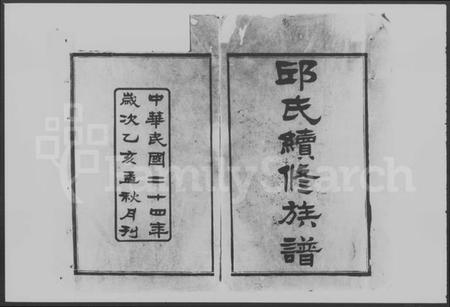 邱氏續修族譜
中華民國二十四年
歲次乙亥孟秋月刊
FamilySearch